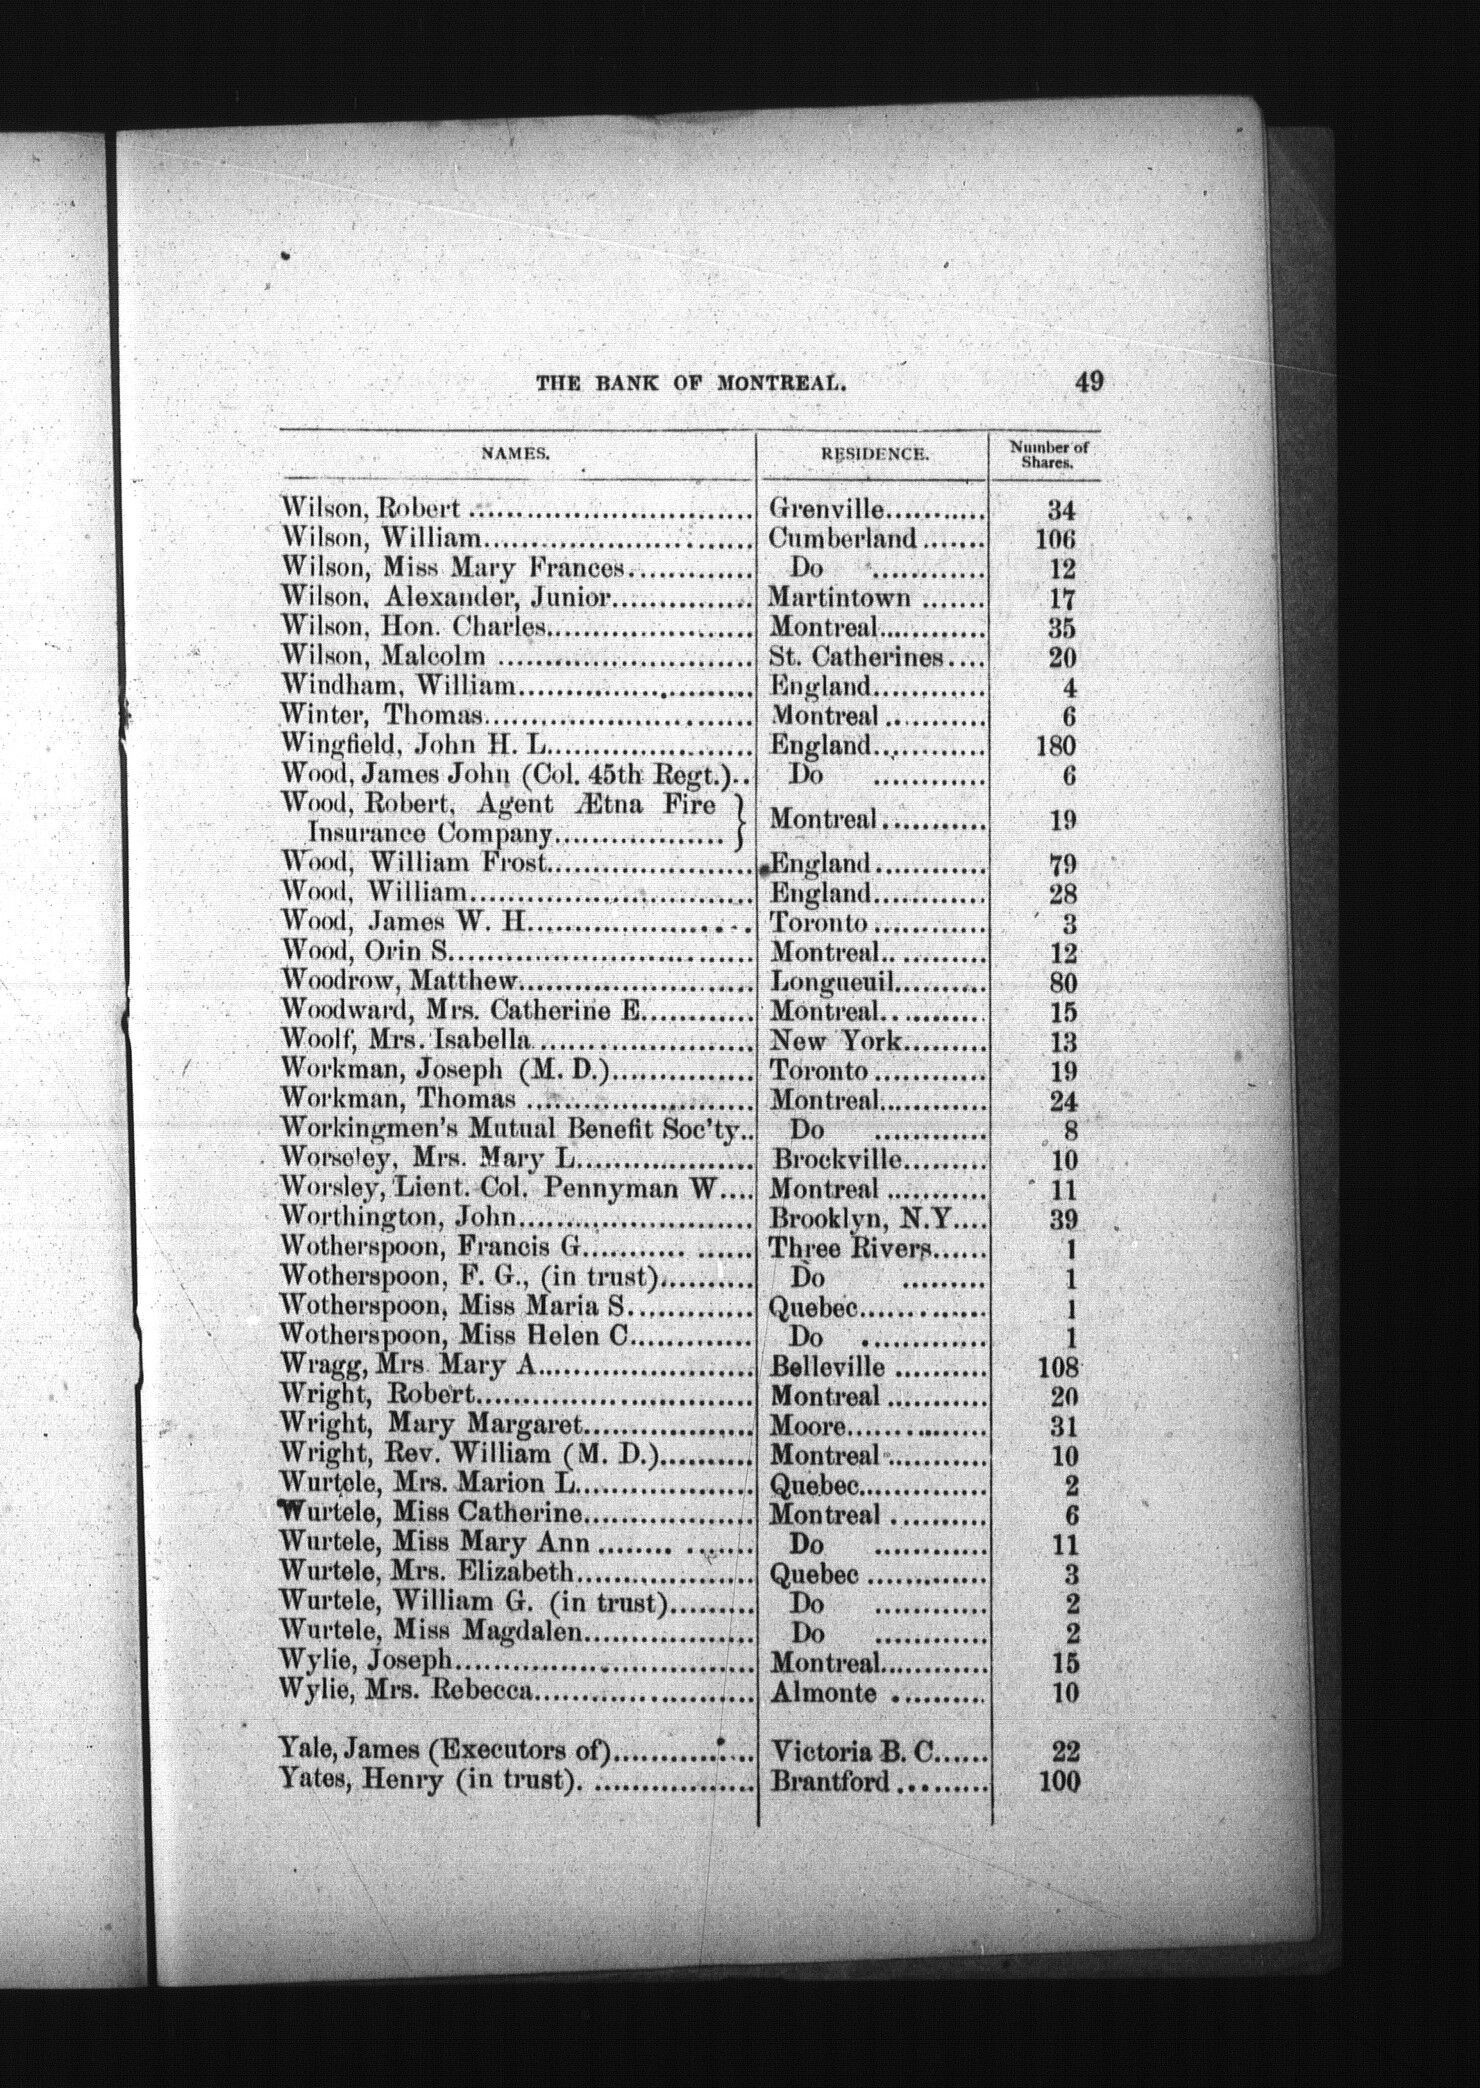 THE BANK OF MONTREAL. 49
NAMES. RESIDENCE. Number of Shares.
Wilson, Robert ............................ Grenville........... 34
Wilson, William............................ Cumberland ....... 106
Wilson, Miss Mary Frances............. Do ............ 12
Wilson, Alexander, Junior............... Martintown ....... 17
Wilson, Hon. Charles...................... Montreal............ 35
Wilson, Malcolm ........................... St. Catherines.... 20
Windham, William......................... England............ 4
Winter, Thomas............................ Montreal ........... 6
Wingfield, John H. L...................... England............ 180
Wood, James John (Col. 45th Regt.).. Do ............ 6
Wood, Robert, Agent Ætna Fire }
Insurance Company.................. } Montreal........... 19
Wood, William Frost...................... England............ 79
Wood, William.............................. England............ 28
Wood, James W. H........................ Toronto ............ 3
Wood, Orin S................................ Montreal........... 12
Woodrow, Matthew........................ Longueuil.......... 80
Woodward, Mrs. Catherine E............ Montreal........... 15
Woolf, Mrs. Isabella....................... New York......... 13
Workman, Joseph (M. D.)............... Toronto ............ 19
Workman, Thomas ........................ Montreal............ 24
Workingmen's Mutual Benefit Soc'ty.. Do ............ 8
Worseley, Mrs. Mary L................... Brockville......... 10
Worsley, Lient. Col. Pennyman W.... Montreal ........... 11
Worthington, John......................... Brooklyn, N.Y.... 39
Wotherspoon, Francis G.................. Three Rivers...... 1
Wotherspoon, F. G., (in trust).......... Do ......... 1
Wotherspoon, Miss Maria S............. Quebec............. 1
Wotherspoon, Miss Helen C............. Do ............. 1
Wragg, Mrs. Mary A....................... Belleville .......... 108
Wright, Robert.............................. Montreal ........... 20
Wright, Mary Margaret.................. Moore............... 31
Wright, Rev. William (M. D.).......... Montreal ........... 10
Wurtele, Mrs. Marion L................... Quebec.............. 2
Wurtele, Miss Catherine.................. Montreal .......... 6
Wurtele, Miss Mary Ann ................ Do ............ 11
Wurtele, Mrs. Elizabeth................... Quebec ............. 3
Wurtele, William G. (in trust)......... Do ............ 2
Wurtele, Miss Magdalen.................. Do ............ 2
Wylie, Joseph................................ Montreal............ 15
Wylie, Mrs. Rebecca....................... Almonte .......... 10
Yale, James (Executors of)............... Victoria B. C...... 22
Yates, Henry (in trust). ................. Brantford ......... 100